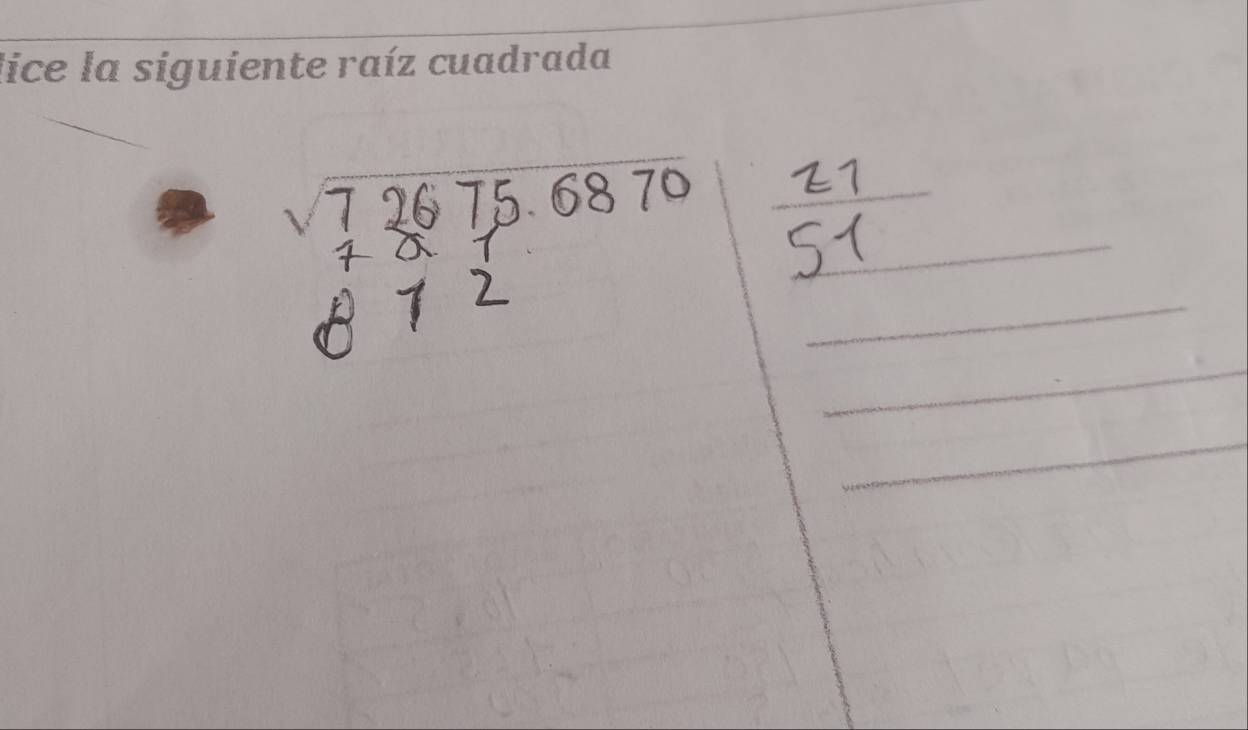 lice la siguiente raíz cuadrada
√7 26 75. 68 70
21
51
8 1 2